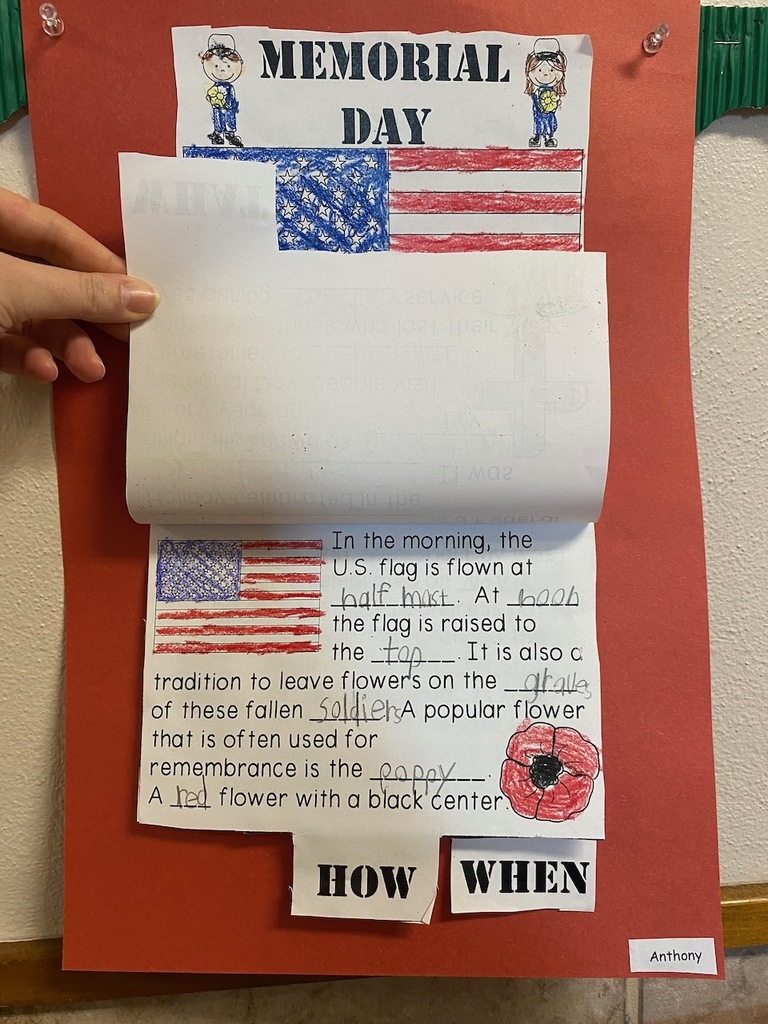 MEMORIAL
DAY
WHAT
In the morning, the
U.S. flag is flown at
half mast. At noon
the flag is raised to
the top. It is also a
tradition to leave flowers on the graves
of these fallen soldiers A popular flower
that is often used for
remembrance is the poppy.
A red flower with a black center.
HOW WHEN
Anthony